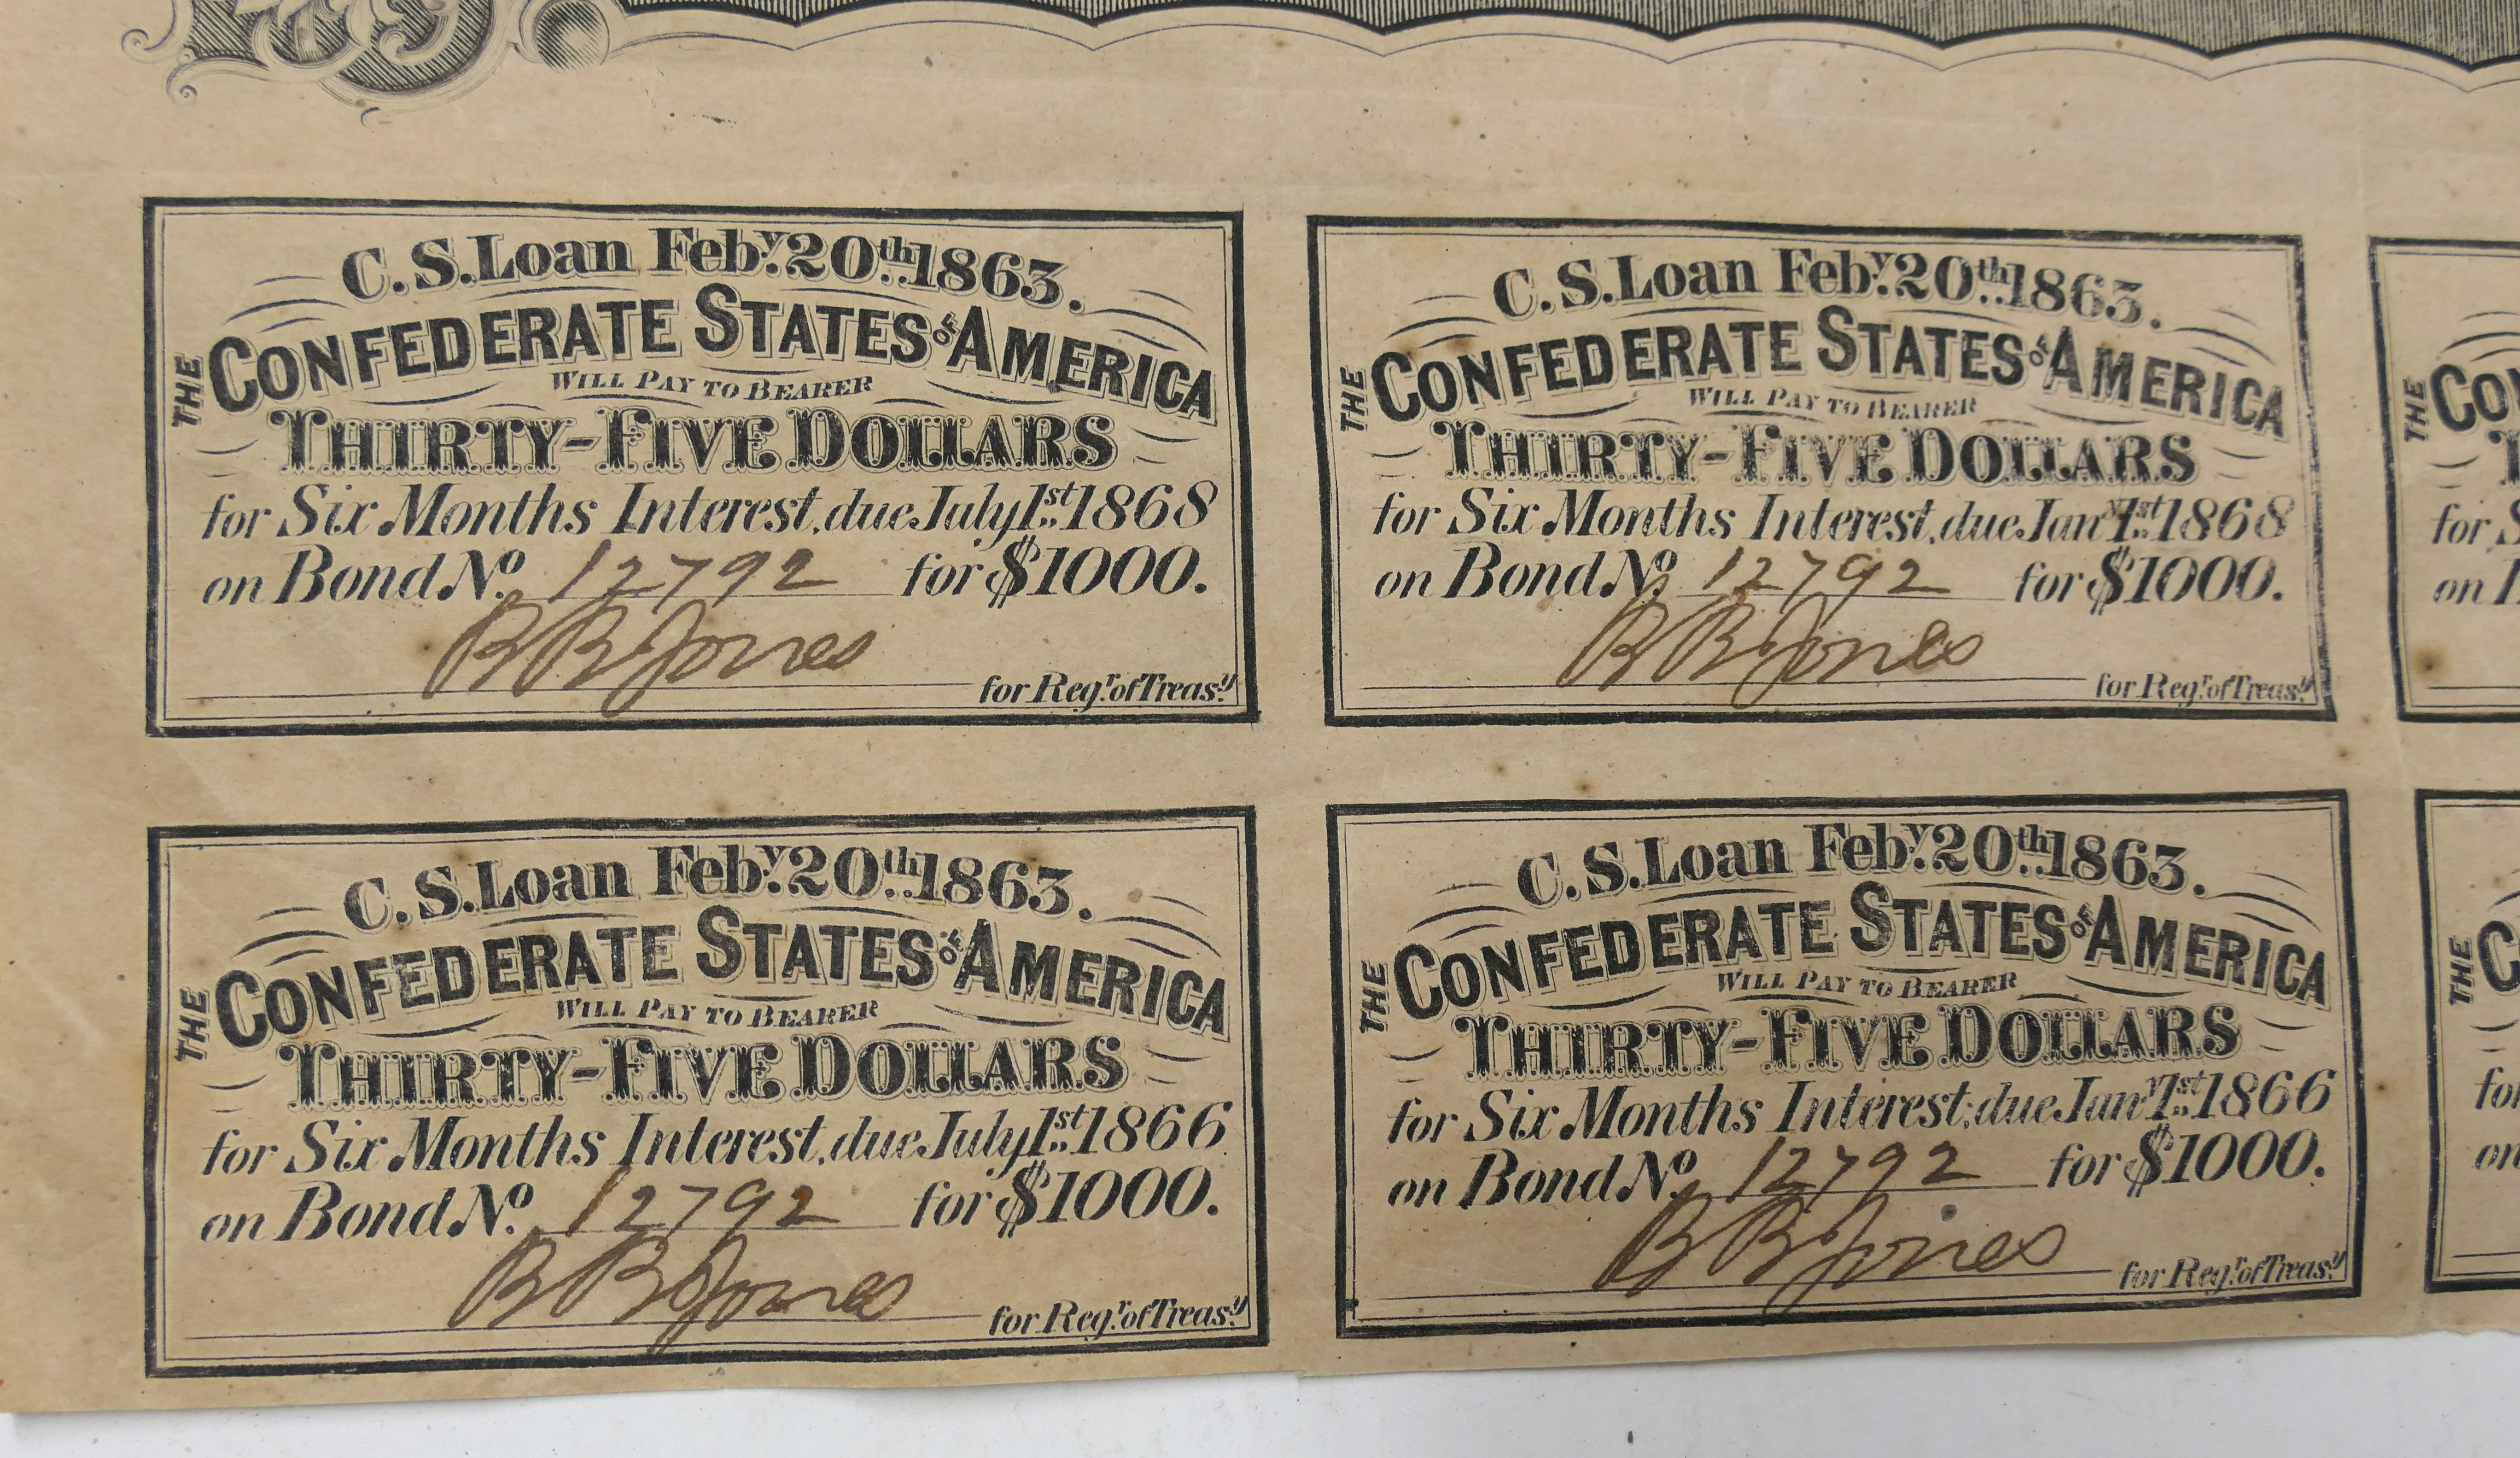 C. S. Loan Feb.y 20th 1863.
THE CONFEDERATE STATES OF AMERICA
WILL PAY TO BEARER
THIRTY-FIVE DOLLARS
for Six Months Interest, due July 1st 1868
on Bond No. 12792 for $1000.
B B Jones
for Reg.r of Treas.y
C. S. Loan Feb.y 20th 1863.
THE CONFEDERATE STATES OF AMERICA
WILL PAY TO BEARER
THIRTY-FIVE DOLLARS
for Six Months Interest, due Jan.y 1st 1868
on Bond No. 12792 for $1000.
B B Jones
for Reg.r of Treas.y
THE CO
for
on
C. S. Loan Feb.y 20th 1863.
THE CONFEDERATE STATES OF AMERICA
WILL PAY TO BEARER
THIRTY-FIVE DOLLARS
for Six Months Interest, due July 1st 1866
on Bond No. 12792 for $1000.
B B Jones
for Reg.r of Treas.y
C. S. Loan Feb.y 20th 1863.
THE CONFEDERATE STATES OF AMERICA
WILL PAY TO BEARER
THIRTY-FIVE DOLLARS
for Six Months Interest, due Jan.y 1st 1866
on Bond No. 12792 for $1000.
B B Jones
for Reg.r of Treas.y
THE
on